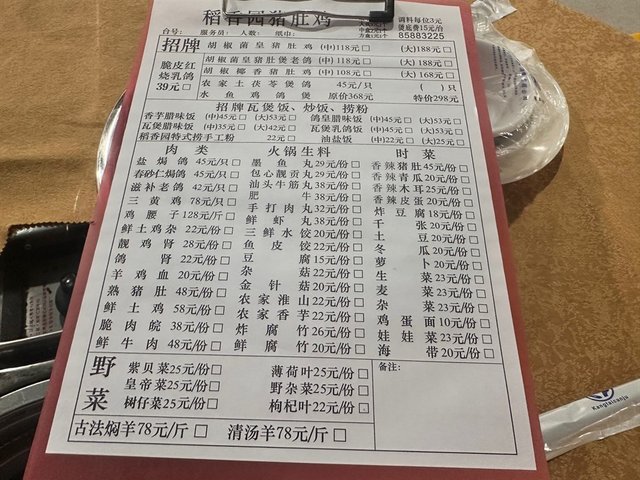 稻香园猪肚鸡
调料每位3元
煲底费15元/台
台号: 服务员: 人数: 纸巾: 85883225
招牌 胡椒菌皇猪肚鸡 (中)118元□ (大)188元□
胡椒菌皇猪肚煲老鸽 (中)118元□ (大)188元□
胡椒椰香猪肚鸡 (中)108元□ (大)168元□
脆皮红烧乳鸽 39元□
农家土茯苓煲鸽 45元/只 ( )只
水鱼鸡鸽煲 原价368元 特价298元
招牌瓦煲饭、炒饭、捞粉
香芋腊味饭 (中)45元□(大)53元□ 鸽皇腊味饭 (中)45元□(大)53元□
瓦煲腊味饭 (中)35元□(大)42元□ 瓦煲乳鸽饭 (中)45元□(大)53元□
稻香园特式捞手工粉 22元□ 油盐饭 (中)22元□(大)25元□
肉类 火锅生料 时菜
盐焗鸽 45元/只□ 墨鱼丸 29元/份□ 香辣猪肚 45元/份□
春砂仁焗鸽 45元/只□ 包心靓贡丸 29元/份□ 香辣青瓜 20元/份□
滋补老鸽 42元/只□ 汕头牛筋丸 38元/份□ 香辣木耳 25元/份□
三黄鸡 78元/只□ 肥牛 38元/份□ 香辣皮蛋 20元/份□
鸡腰子 128元/斤□ 手打肉丸 32元/份□ 炸豆腐 18元/份□
鲜土鸡杂 22元/份□ 鲜虾丸 38元/份□ 千张 20元/份□
靓鸡肾 28元/份□ 三鲜水饺 20元/份□ 土豆 20元/份□
鸽肾 22元/份□ 鱼皮饺 22元/份□ 冬瓜 20元/份□
羊鸡血 20元/份□ 豆腐 15元/份□ 萝卜 20元/份□
熟猪肚 48元/份□ 杂菇 22元/份□ 生菜 23元/份□
鲜土鸡 58元/份□ 金针菇 20元/份□ 麦菜 23元/份□
脆肉皖 38元/份□ 农家淮山 22元/份□ 杂菜 23元/份□
鲜牛肉 48元/份□ 农家香芋 22元/份□ 鸡蛋面 10元/份□
炸腐竹 26元/份□ 娃娃菜 23元/份□
鲜腐竹 20元/份□ 海带 20元/份□
野菜 紫贝菜25元/份□ 薄荷叶25元/份□ 备注:
皇帝菜25元/份□ 野杂菜25元/份□
树仔菜25元/份□ 枸杞叶22元/份□
古法焖羊78元/斤 □ 清汤羊78元/斤 □
Kangtaicanju